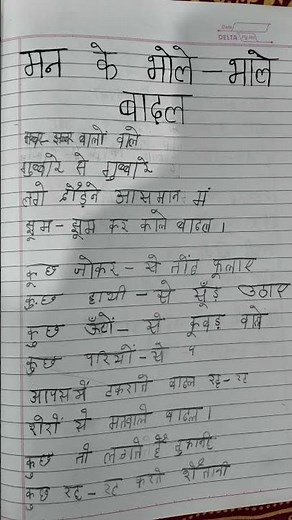 DELTA
मन के भोले-भाले
बादल
झब्बर-झब्बर बालों वाले
गुब्बारे से गुब्बारे
लगे दौड़ने आसमान में
झूम-झूम कर काले बादल।
कुछ जोकर-से तोंद फुलाए
कुछ हाथी-से सूँड़ उठाए
कुछ ऊँटों-से कूबड़ वाले
कुछ परियों-से
आपस में टकराते बादल रह-रह
शेरों से मतवाले बादल।
कुछ तो लगते है तूफानी
कुछ रह-रह करते शैतानी